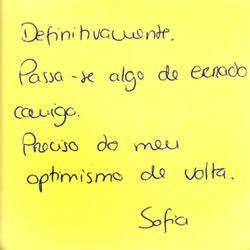 Definitivamente.
Passa-se algo de errado
comigo.
Preciso do meu
optimismo de volta.
Sofia